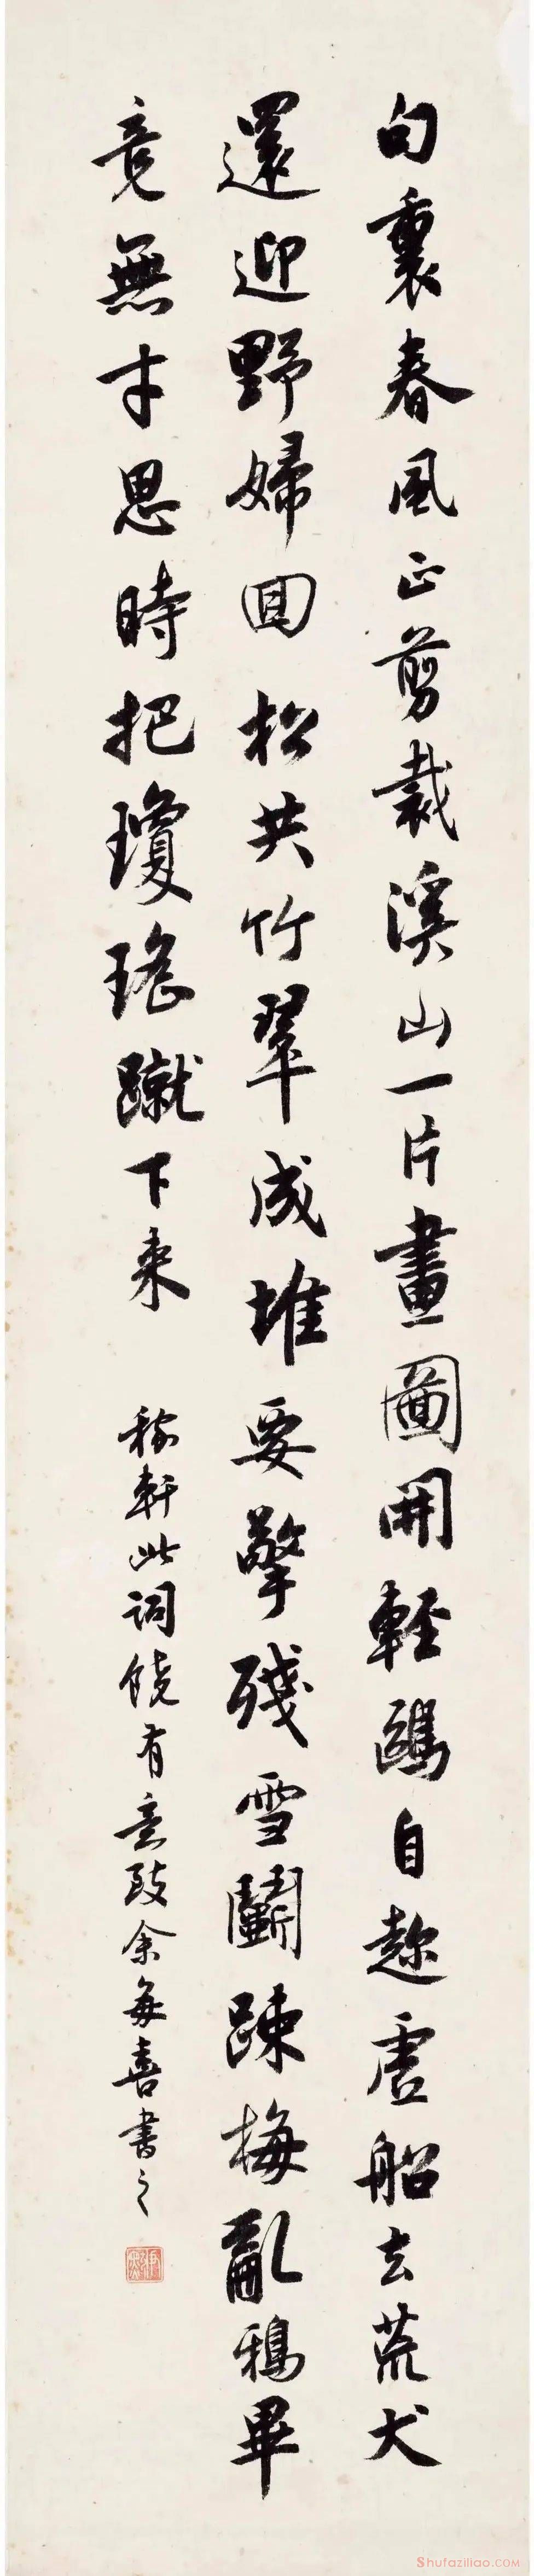 句裏春風正剪裁溪山一片畫圖開輕鷗自趁虛船去荒犬
還迎野婦回松共竹翠成堆要擎殘雪鬬踈梅亂鴉畢
竟無才思時把瓊瑤蹴下来
稼軒此詞饒有意致余每喜書之
Shufaziliao.COM